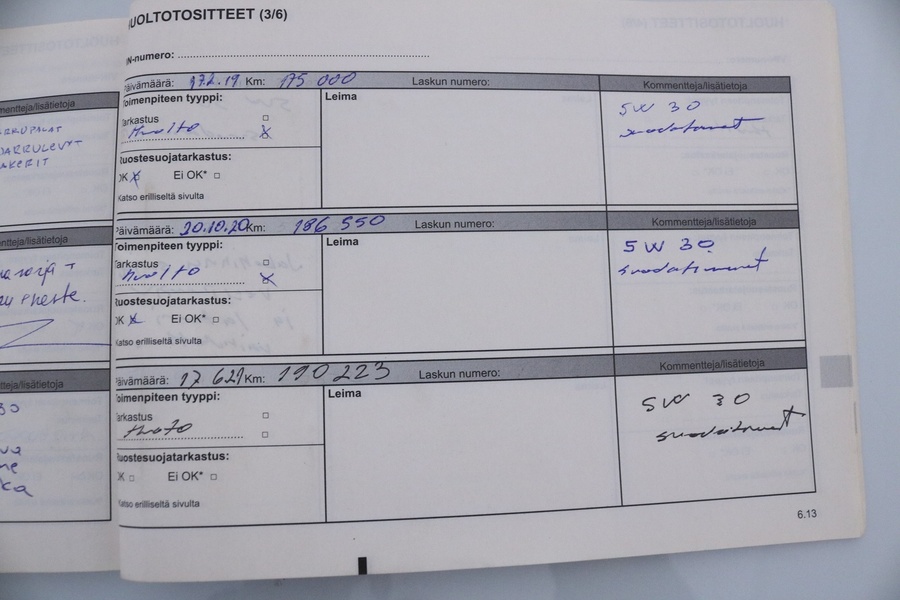 HUOLTOTOSITTEET (3/6)
VIN-numero:
Päivämäärä: 17.2.19 Km: 175 000 Laskun numero: Kommentteja/lisätietoja
Toimenpiteen tyyppi: Leima
5W 30
Tarkastus
suodattimet
Huolto
Ruostesuojatarkastus:
OK Ei OK*
Katso erilliseltä sivulta
Päivämäärä: 20.10.20 Km: 186 550 Laskun numero: Kommentteja/lisätietoja
Toimenpiteen tyyppi: Leima
5W 30
Tarkastus
suodattimet
Huolto
Ruostesuojatarkastus:
OK Ei OK*
Katso erilliseltä sivulta
Päivämäärä: 17 621 Km: 190 223 Laskun numero: Kommentteja/lisätietoja
Toimenpiteen tyyppi: Leima
5W 30
Tarkastus
suodattimet
Huolto
Ruostesuojatarkastus:
OK Ei OK*
Katso erilliseltä sivulta
6.13